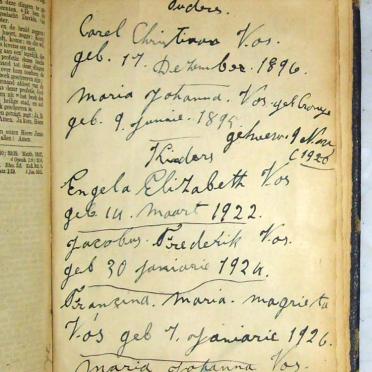 Ouders.
Carel Christiaan Vos.
geb. 17. Dezember. 1896.
Maria Johanna. Vos. geb Cronje
geb. 9. Junie. 1895.
gehuw. 9 Nov
1920
Kinders
Engela Elizabeth Vos
geb 14. Maart 1922.
Jacobus. Frederik Vos.
geb 30 Janiarie 1924.
Franzina. Maria. Magrieta
Vos geb 7. Janiarie 1926.
Maria Johanna Vos.